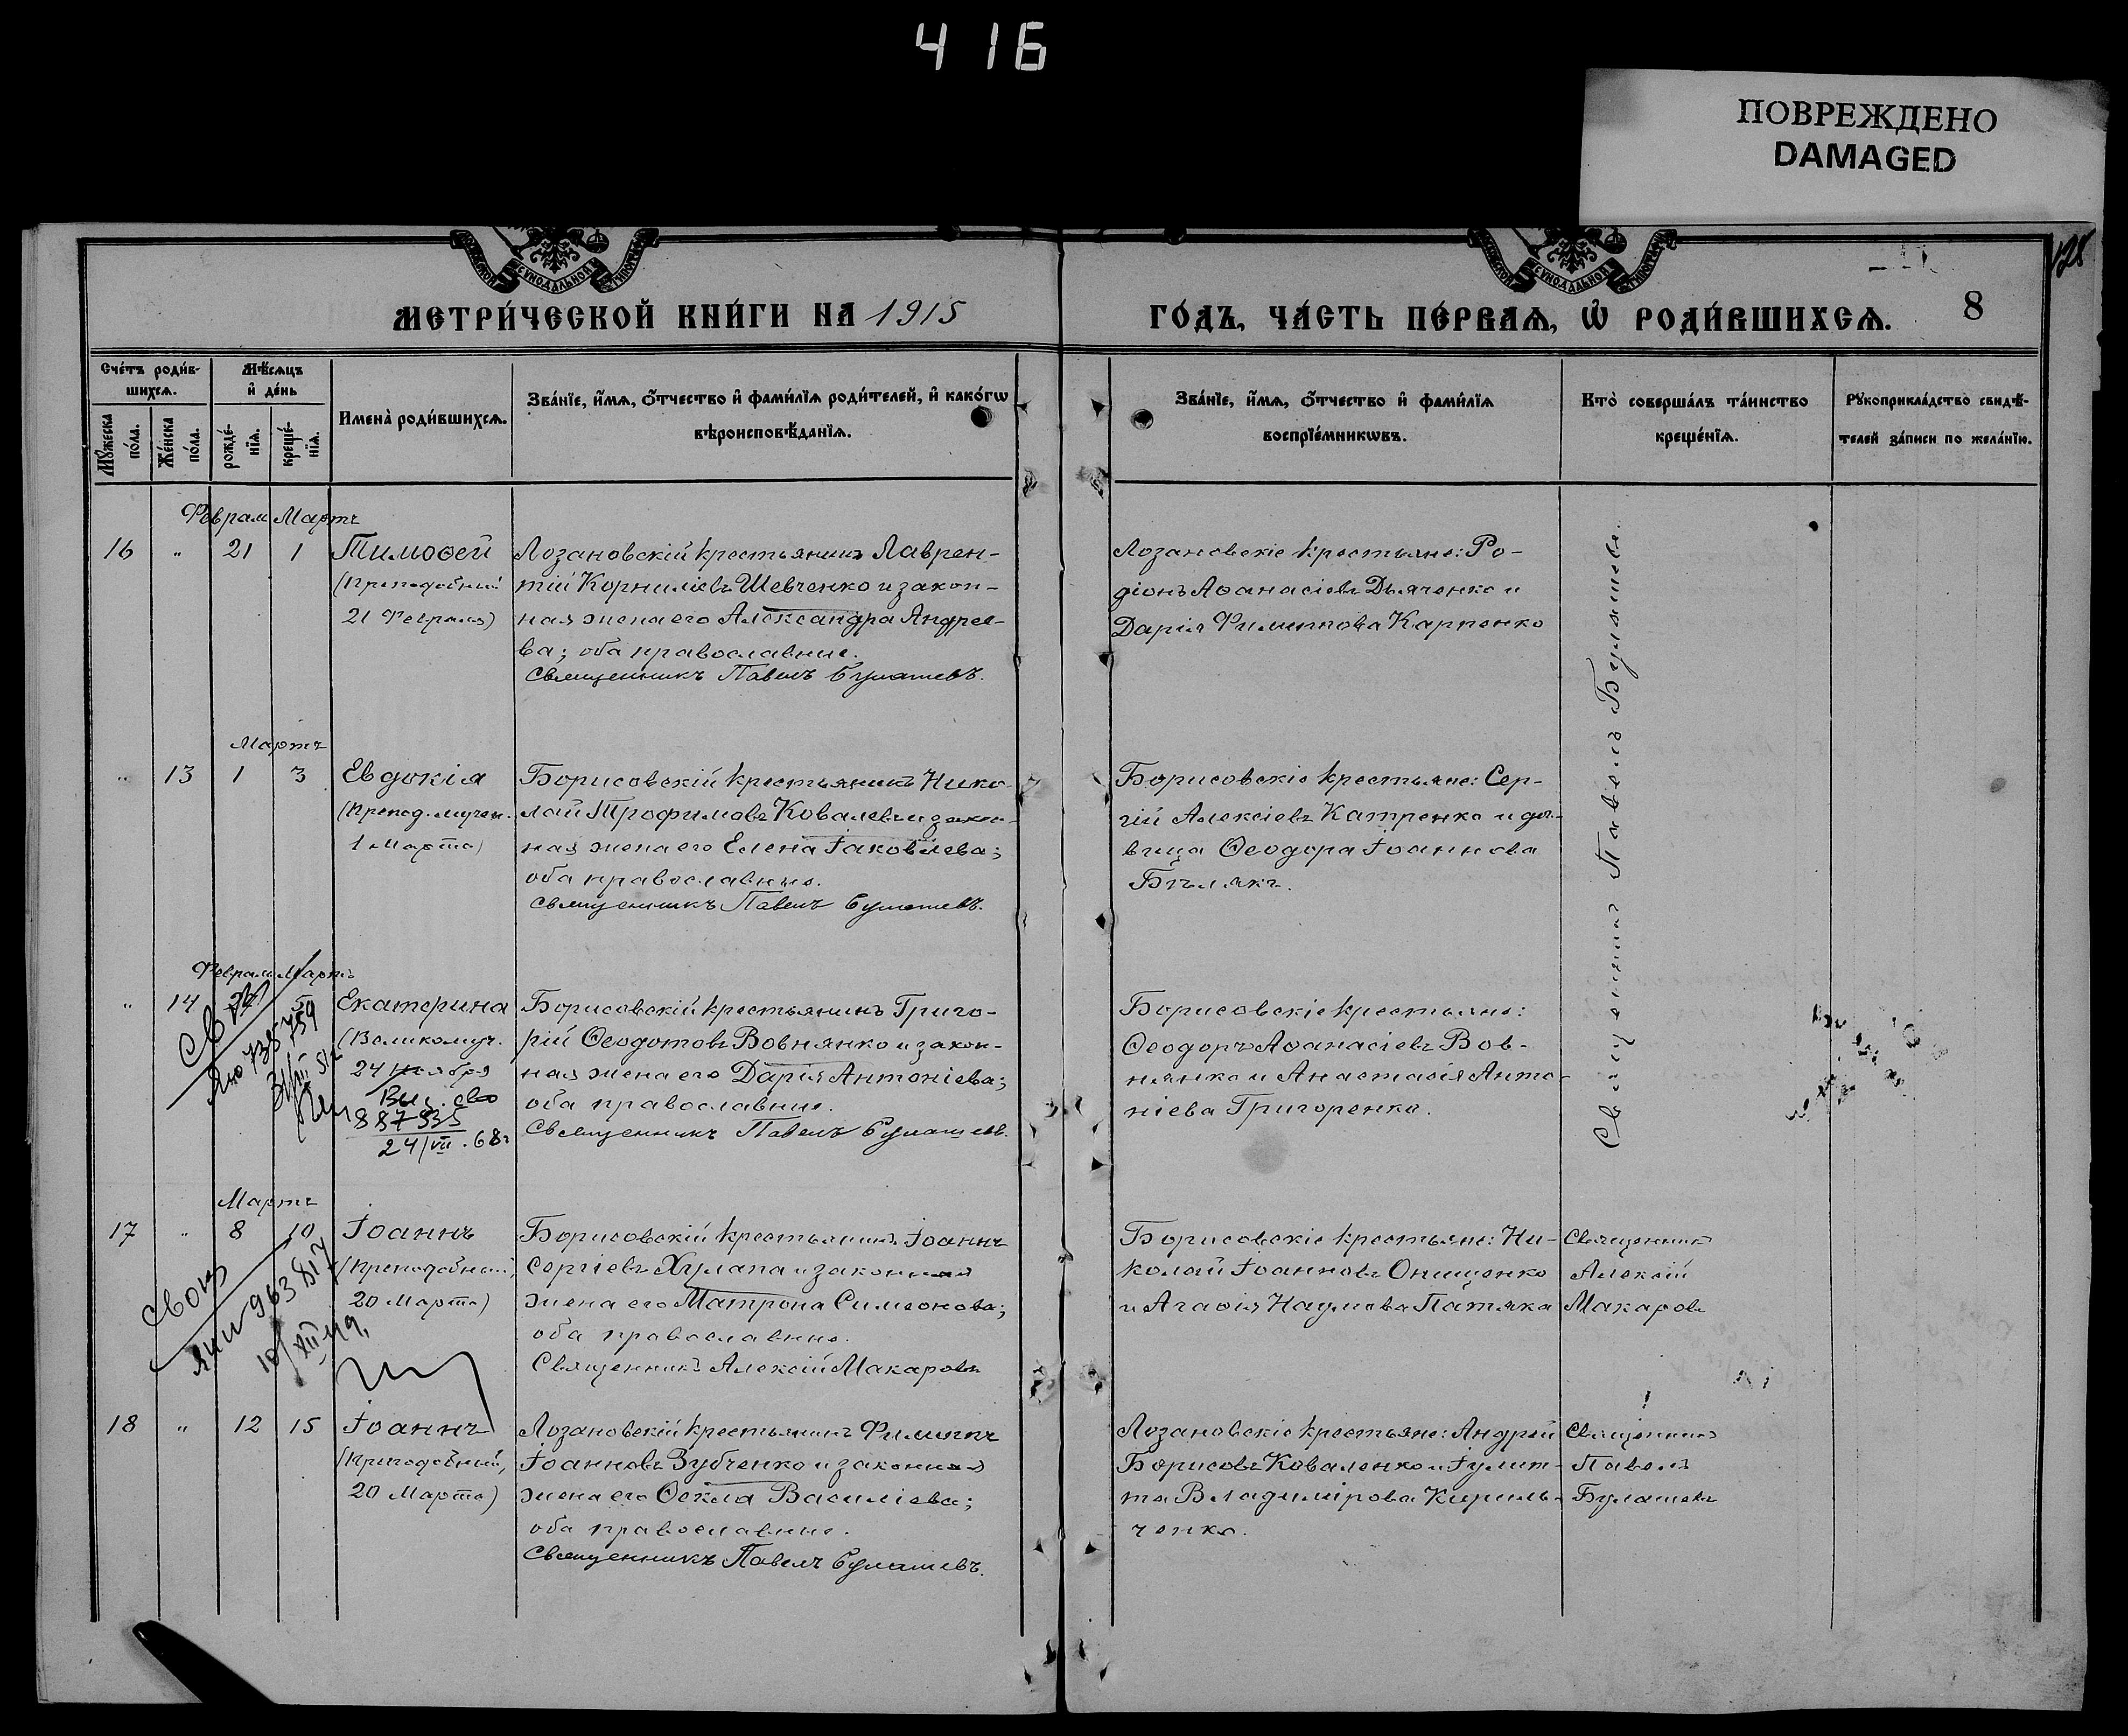 416
ПОВРЕЖДЕНО
DAMAGED
МЕТРИ́ЧЕСКОЙ КНИ́ГИ НА 1915
ГО́ДЪ, ЧА́СТЬ ПЕ́РВАѦ, Ѡ҆ РОДИ́ВШИХСѦ.
8
128
Сче́тъ роди́в-
шихсѧ.
Мѣ́сѧцъ
и҆ де́нь
Мꙋ́жеска
по́ла.
Же́нска
по́ла.
рожде́-
нїѧ.
креще́-
нїѧ.
Имена̀ роди́вшихсѧ.
Зва́нїе, и҆́мѧ, ѻ҆́тчество и҆ фами́лїѧ роди́телей, и҆ како́гѡ
вѣроисповѣ́данїѧ.
Зва́нїе, и҆́мѧ, ѻ҆́тчество и҆ фами́лїѧ
воспрїе́мникѡвъ.
Кто̀ соверша́лъ та́инство
креще́нїѧ.
Рꙋкоприкла́дство свидѣ́-
телей за́писи по жела́нїю.
Феврал Мартъ
16 " 21 1 Тимоѳей
(Преподобный
21 Февраля)
Лозановскій крестьянинъ Лаврен-
тій Корниліевъ Шевченко и закон-
ная жена его Александра Андрее-
ва; оба православные.
Священникъ Павелъ Булашевъ.
Лозановскіе крестьяне: Ро-
діонъ Аѳанасіевъ Дьяченко и
Дарія Филиппова Карпенко
Священникъ Павелъ Булашевъ.
Мартъ
" 13 1 3 Евдокія
(Препод. мучен.
1 Марта)
Борисовскій крестьянинъ Нико-
лай Трофимовъ Ковалевъ и закон-
ная жена его Елена Іаковлева;
оба православные.
Священникъ Павелъ Булашевъ.
Борисовскіе крестьяне: Сер-
гій Алексіевъ Катренко и де-
вица Ѳеодора Іоаннова
Бѣлякъ.
Феврал Мартъ
" 14 5 Екатерина
(Великомуч.
24 Ноября
Сво
738759
Выд. сво
887935
24/VII.68г
Борисовскій крестьянинъ Григо-
рій Ѳеодотовъ Вовнянко и закон-
ная жена его Дарія Антоніева;
оба православные.
Священникъ Павелъ Булашевъ.
Борисовскіе крестьяне:
Ѳеодоръ Аѳанасіевъ Вов-
нянко и Анастасія Анто-
ніева Григоренко.
Мартъ
17 " 8 10 Іоаннъ
(Преподобный,
20 Марта)
963817
10/XII 49.
Борисовскій крестьянинъ Іоаннъ
Сергіевъ Хулапа и законная
жена его Матрона Симеонова;
оба православные.
Священникъ Алексій Макаровъ
Борисовскіе крестьяне: Ни-
колай Іоанновъ Онищенко
и Агаѳія Наумова Патяка
Священникъ
Алексій
Макаровъ
18 " 12 15 Іоаннъ
(Преподобный,
20 Марта)
Лозановскій крестьянинъ Филиппъ
Іоанновъ Зубченко и законная
жена его Ѳекла Василіева;
оба православные.
Священникъ Павелъ Булашевъ.
Лозановскіе крестьяне: Андрей
Борисовъ Коваленко и Іулит-
та Владимірова Кириль-
ченко.
Священникъ
Павелъ
Булашевъ